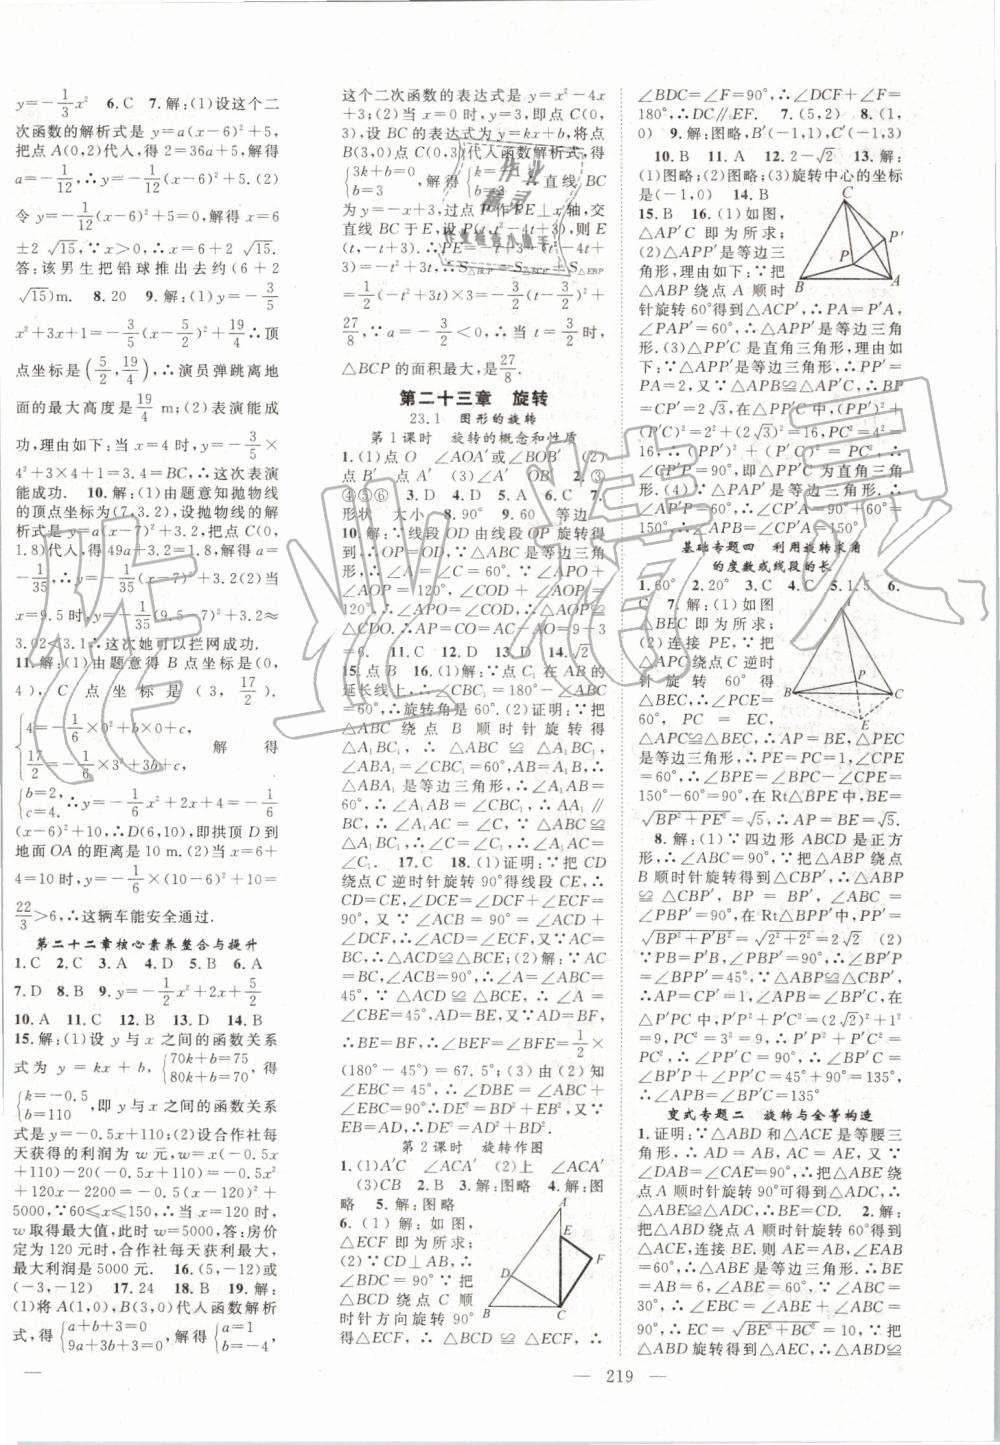 y=-1/3x² 6.C 7.解:(1)设这个二
次函数的解析式是 y=a(x-6)²+5,
把点 A(0,2)代入,得 2=36a+5,解得
a=-1/12,∴y=-1/12(x-6)²+5.(2)
令 y=-1/12(x-6)²+5=0,解得 x=6
±2√15,∵x>0,∴x=6+2√15.
答:该男生把铅球推出去约(6+2
√15)m. 8.20 9.解:(1)y=-3/5
x²+3x+1=-3/5(x-5/2)²+19/4∴顶
点坐标是(5/2,19/4),∴演员弹跳离地
面的最大高度是19/4 m;(2)表演能成
功,理由如下:当 x=4 时,y=-3/5×
4²+3×4+1=3.4=BC,∴这次表演
能成功. 10.解:(1)由题意知抛物线
的顶点坐标为(7,3.2),设抛物线的解
析式是 y=a(x-7)²+3.2,把点 C(0,
1.8)代入,得 49a+3.2=1.8,∴a=
-1/35,∴y=-1/35(x-7)²+3.2;(2)当
x=9.5 时,y=-1/35(9.5-7)²+3.2≈
3.02<3.1∴这次她可以拦网成功.
11.解:(1)由题意得 B 点坐标是(0,
4),C 点坐标是(3,17/2).
{4=-1/6×0²+b×0+c, 17/2=-1/6×3²+3b+c, 解得
{b=2, c=4. ∴y=-1/6x²+2x+4=-1/6
(x-6)²+10,∴D(6,10),即拱顶 D 到
地面 OA 的距离是 10 m.(2)当 x=6+
4=10 时,y=-1/6×10²+2×10+4=
22/3>6,∴这辆车能安全通过.
第二十二章核心素养整合与提升
1.C 2.C 3.A 4.D 5.B 6.A
7.D 8.B 9.y=-1/2x²+2x+5/2
10.A 11.C 12.B 13.D 14.B
15.解:(1)设 y 与 x 之间的函数关系
式为 y=kx+b,{70k+b=75 80k+b=70 得
{k=-0.5 b=110,即 y 与 x 之间的函数关系
式是 y=-0.5x+110;(2)设合作社每
天获得的利润为 w 元,w=x(-0.5x
+110)-20(-0.5x+110)=-0.5x²
+120x-2200=-0.5(x-120)²+
5000,∵60≤x≤150,∴当 x=120 时,
w 取得最大值,此时 w=5000,答:房价
定为 120 元时,合作社每天获利最大,
最大利润是 5000 元. 16.(5,-12)或
(-3,-12) 17.24 18.B 19.解:
(1)将 A(1,0),B(3,0)代入函数解析
式,得{a+b+3=0 9a+3b+3=0,解得{a=1 b=-4,
这个二次函数的表达式是 y=x²-4x
+3;(2)当 x=0 时,y=3,即点 C(0,
3),设 BC 的表达式为 y=kx+b,将点
B(3,0)点 C(0,3)代入函数解析式,得
{3k+b=0 b=3,解得{k=-1 b=3,∴直线 BC
为 y=-x+3,过点 P 作 PE⊥x 轴,交
直线 BC 于 E,设 P(t,t²-4t+3),E
(t,-t+3),∴PE=-t+3-(t²-4t+
3)=-t²+3t,∴S△BCP=S△PCE+S△EBP
=1/2(-t²+3t)×3=-3/2(t-3/2)²+
27/8,∵a=-3/2<0,∴当 t=3/2 时,
△BCP 的面积最大,是27/8.
第二十三章 旋转
23.1 图形的旋转
第 1 课时 旋转的概念和性质
1.(1)点 O ∠AOA′或∠BOB′ (2)
点 B′ 点 A′ (3)∠A′ OB 2.③
④⑤⑥ 3.D 4.D 5.A 6.C 7.
形状 大小 8.90° 9.60 等边
10.解:∵线段 OD 由线段 OP 旋转得
到,∴OP=OD,∵△ABC 是等边三角
形,∴∠A=∠C=60°,∵∠OPA+
∠AOP=120°,∠AOP+∠COD=
120°,∴∠OPA=∠COD,∴△AOP≌
△CDO,∴AP=CO=AC-AO=9-3
=6. 11.C 12.C 13.D 14.√2
15.点 B 16.(1)解:∵点 C₁ 在 AB 的
延长线上,∴∠CBC₁=180°-∠ABC
=60°,∴旋转角是 60°.(2)证明:∵把
△ABC 绕点 B 顺时针旋转得到
△A₁BC₁,∴△ABC≌△A₁BC₁,
∴∠ABA₁=∠CBC₁=60°,A₁B=AB,∴
△ABA₁ 是等边三角形,∴∠A₁AB=
60°,∴∠A₁AB=∠CBC₁,∴AA₁∥
BC. 17.C 18.(1)证明:∵把 CD
绕点 C 逆时针旋转 90°得线段 CE,∴
CD=CE,∠DCE=90°,∴∠DCB+
∠BCE=90°,又∵∠ACB=90°=
∠ACD+∠DCB,∴∠ACD=∠ECB,
∵AC=BC,∴△ACD≌△BCE;(2)解:
∵AC=BC,∠ACB=90°,∴∠A=∠ABC
=45°,∵△ACD≌△BCE,∴∠A=
∠CBE=45°,又∵DA=EB,AD=BF,
∴BE=BF,∴∠BEF=∠BFE=1/2×
(180°-45°)=67.5°;(3)由(2)知
∠EBC=45°,∴∠DBE=∠ABC+
∠EBC=90°,∴DE²=BD²+EB²,又∵
DA=EB,∴DE²=BD²+DA².
第 2 课时 旋转作图
1.(1)A′C ∠ACA′ (2)上 ∠ACA′
(3)CB 2.B 3.解:图略 4.解:图
略 5.解:图略
6.(1)解:如图,
△ECF 即为所求;
(2)∵CD⊥AB,∴
∠BDC=90°,∵把
△BCD 绕点 C 顺
时针方向旋转 90°
得△ECF,∴△BCD≌△ECF,∴
A
E
D
F
B
C
∠BDC=∠F=90°,∴∠DCF+∠F=
180°,∴DC∥EF. 7.(5,2) 8.(1,
0) 9.解:图略,B′(-1,1),C′(-1,3)
10.B 11.A 12.2-√2 13.解:
(1)图略;(2)图略;(3)旋转中心的坐标
是(-1,0) 14.B
15.B 16.(1)如图,
△AP′C 即为所求;
(2)△APP′是等边三
角形,理由如下:∵把
△ABP 绕点 A 顺时
针旋转 60°得到△AP′C,∴PA=P′A,
∠PAP′=60°,∴△APP′是等边三角
形.(3)△PP′C 是直角三角形,理由如
下:∵△APP′是等边三角形,∴PP′=
PA=2,又∵△APB≌△AP′C,∴BP
=CP′=2√3,在△PP′C 中,∵(PP′)²+
(CP′)²=2²+(2√3)²=16,PC²=4²=
16,∴(PP′)²+(CP′)²=PC²,∴
∠PP′C=90°,即△PP′C 为直角三角
形.(4)∵△PP′A 是等边三角形,∴
∠PP′A=60°,又∵∠PP′C=90°,∴
∠AP′C=150°,∴∠APB=∠AP′C=150°
C
P′
P
B
A
基础专题四 利用旋转求角
的度数或线段的长
1.60° 2.20° 3.C 5.1.5 6.
C 7.解:(1)如图
△BEC 即为所求;
(2)连接 PE,∵把
△APC 绕点 C 逆时
针旋转 60°得
△BEC,∴∠PCE=
60°,PC=EC,
△APC≌△BEC,∴AP=BE,△PEC
是等边三角形,∴PE=PC=1,∠CPE=
60°,∴∠BPE=∠BPC-∠CPE=
150°-60°=90°,在 Rt△BPE 中,BE=
√(BP²+PE²)=√5,∴AP=BE=√5.
A
P
B
C
E
8.解:(1)∵四边形 ABCD 是正方
形,∴∠ABC=90°,∵把△ABP 绕点
B 顺时针旋转得到△CBP′,∴△ABP≌
△CBP′,BP=BP′,∠PBP′=
∠ABC=90°,在 Rt△BPP′中,PP′=
√(BP²+P′B²)=√(2²+2²)=2√2 (2)∵
∠BPP′=45°,∵△ABP≌△CBP′,
∴AP=CP′=1,∠APB=∠CP′B,在
△P′PC 中,P′P²+P′C²=(2√2)²+1²
=9,PC²=3²=9,∴P′P²+P′C²=
PC²,∴∠PP′C=90°,∴∠BP′C=
∠BP′P+∠PP′C=45°+90°=135°,
∴∠APB=∠BP′C=135°.
变式专题二 旋转与全等构造
1.证明:∵△ABD 和△ACE 是等腰三
角形,∴AD=AB,AC=AE,又∵
∠DAB=∠CAE=90°,∴把△ABE 绕
点 A 顺时针旋转 90°可得到△ADC,∴
△ABE≌△ADC,∴BE=CD. 2.解:
把△ABD 绕点 A 顺时针旋转 60°得到
△ACE,连接 BE,∵AB=AE,∠BAE=
60°,∴∠ABE=60°,∵∠ABC=
30°,∴∠EBC=∠ABE+∠ABC=
90°,∴EC=√(BE²+BC²)=10,∵把
△ABD 旋转得到△AEC,∴△ABD≌
— 219 —